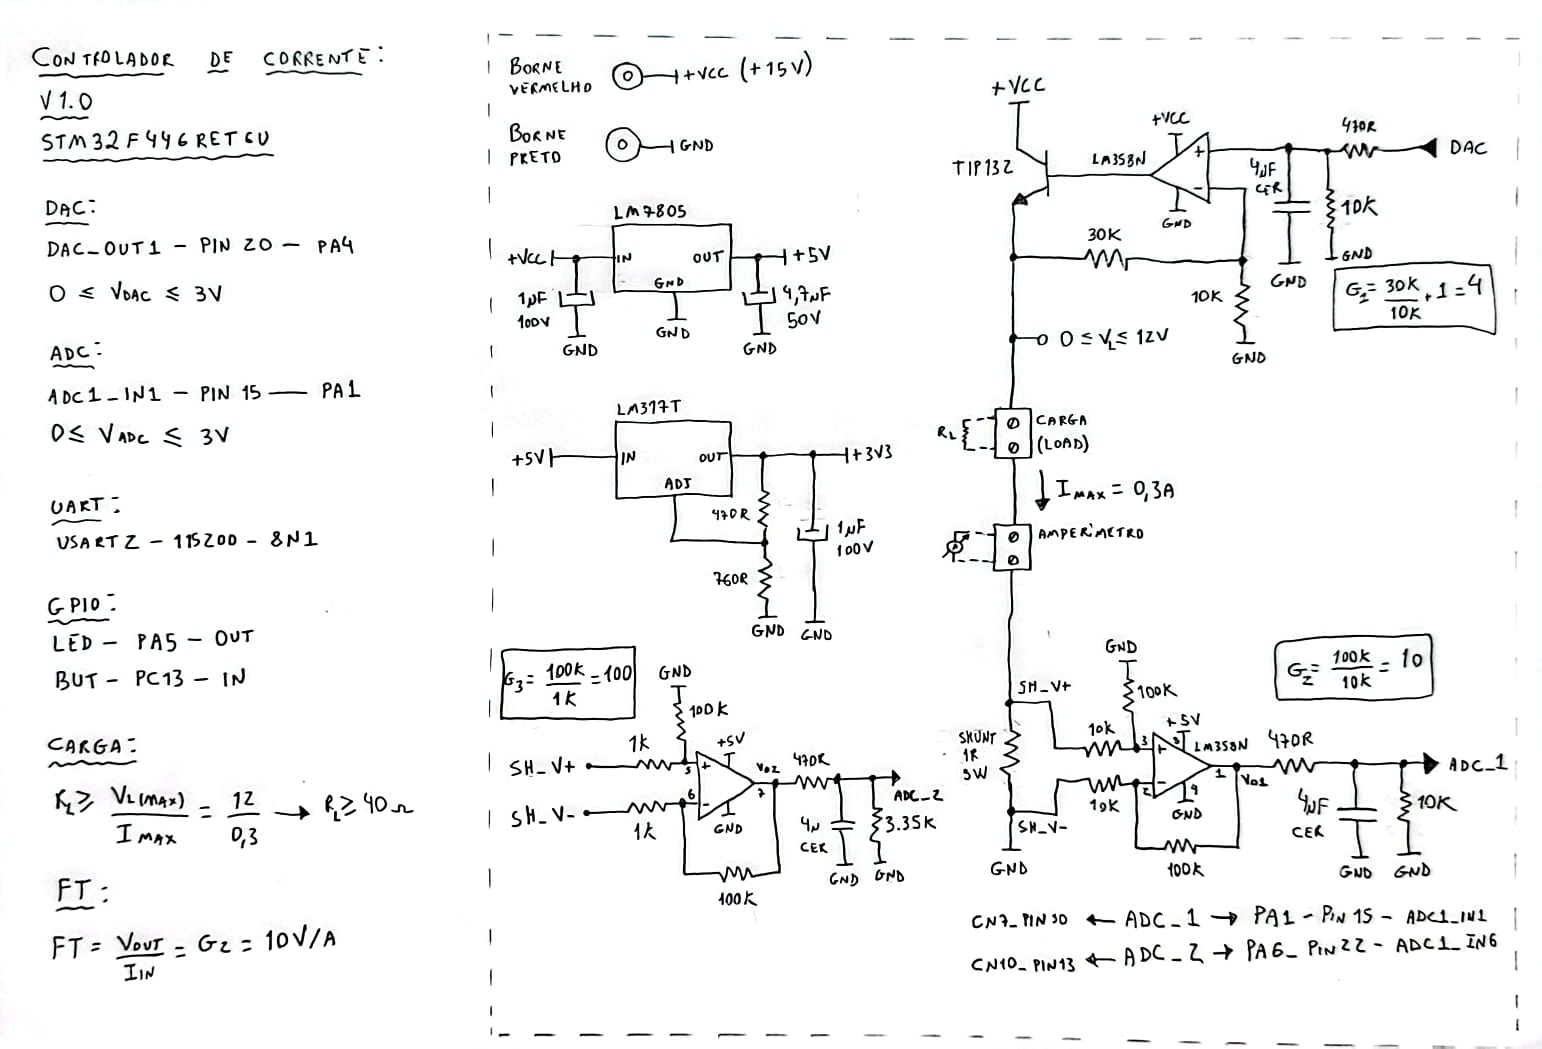 CONTROLADOR DE CORRENTE:
V1.0
STM32F446RET6U
DAC:
DAC_OUT1 - PIN 20 - PA4
0 ≤ VDAC ≤ 3V
ADC:
ADC1_IN1 - PIN 15 — PA1
0 ≤ VADC ≤ 3V
UART:
USART2 - 115200 - 8N1
GPIO:
LED - PA5 - OUT
BUT - PC13 - IN
CARGA:
RL ≥ VL(MAX) / IMAX = 12 / 0,3 → RL ≥ 40Ω
FT:
FT = VOUT / IIN = G2 = 10V/A
BORNE VERMELHO
+VCC (+15V)
BORNE PRETO
GND
LM7805
+VCC
IN
OUT
GND
+5V
1µF
100V
GND
GND
4,7µF
50V
GND
LM317T
+5V
IN
OUT
ADJ
+3V3
470R
760R
1µF
100V
GND
GND
G3 = 100K / 1K = 100
GND
100K
1K
SH_V+
5
+
+5V
VO2
470R
SH_V-
6
-
7
ADC_2
1K
GND
4µ
CER
3.35K
GND
GND
100K
+VCC
TIP132
LM358N
+VCC
+
-
GND
470R
DAC
4µF
CER
10K
GND
GND
30K
10K
GND
G1 = 30K / 10K + 1 = 4
0 ≤ VL ≤ 12V
RL
CARGA
(LOAD)
IMAX = 0,3A
A
AMPERÍMETRO
SH_V+
SHUNT
1R
5W
SH_V-
GND
GND
100K
10K
3
+
+5V
8
LM358N
470R
10K
2
-
4
GND
1
VO1
100K
ADC_1
4µF
CER
10K
GND
GND
G2 = 100K / 10K = 10
CN7_PIN30 ← ADC_1 → PA1 - PIN 15 - ADC1_IN1
CN10_PIN13 ← ADC_2 → PA6_PIN22 - ADC1_IN6